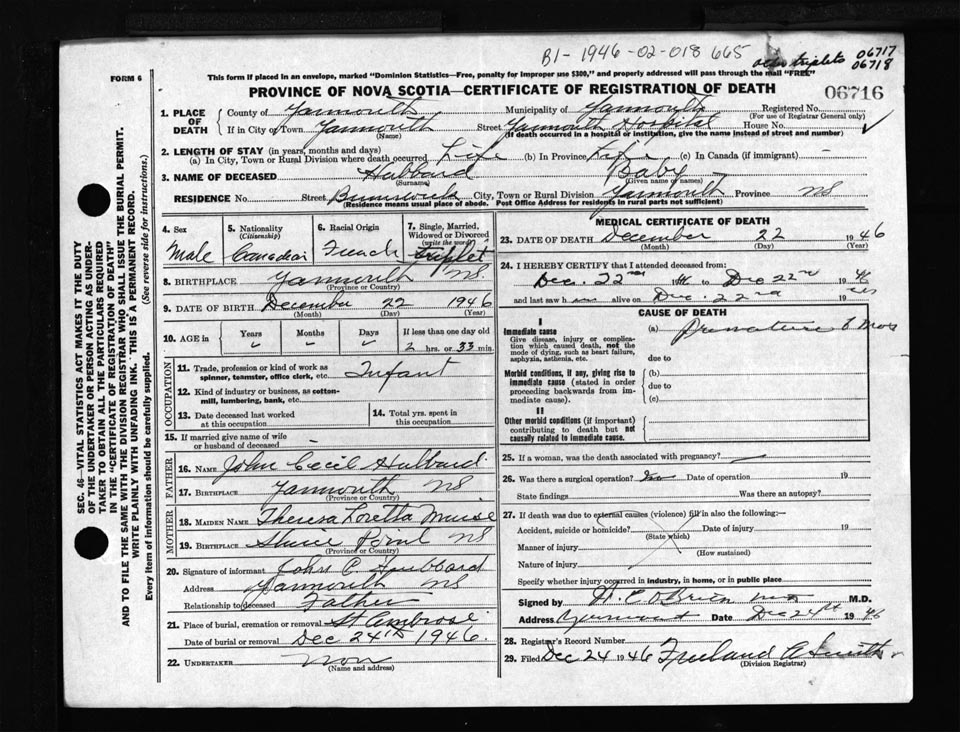 B1-1946-02-018665
other triplets 06717
06718
FORM 6
This form if placed in an envelope, marked "Dominion Statistics—Free, penalty for improper use $300," and properly addressed will pass through the mail "FREE"
PROVINCE OF NOVA SCOTIA—CERTIFICATE OF REGISTRATION OF DEATH
06716
1. PLACE OF DEATH
County of Yarmouth Municipality of Yarmouth Registered No.
(For use of Registrar General only)
If in City or Town Yarmouth Street Yarmouth Hospital House No.
(Name) (If death occurred in a hospital or institution, give the name instead of street and number)
2. LENGTH OF STAY (in years, months and days)
(a) In City, Town or Rural Division where death occurred Life (b) In Province Life (c) In Canada (if immigrant) -
3. NAME OF DECEASED Hubbard Baby
(Surname) (Given name or names)
RESIDENCE No. Street Brunswick City, Town or Rural Division Yarmouth Province NS
(Residence means usual place of abode. Post Office Address for residents in rural parts not sufficient)
4. Sex Male
5. Nationality (Citizenship) Canadian
6. Racial Origin French
7. Single, Married, Widowed or Divorced (write the word) triplet
8. BIRTHPLACE Yarmouth NS
(Province or Country)
9. DATE OF BIRTH December 22 1946
(Month) (Day) (Year)
10. AGE in Years Months Days If less than one day old
2 hrs. or 33 min.
OCCUPATION
11. Trade, profession or kind of work as spinner, teamster, office clerk, etc. Infant
12. Kind of industry or business, as cotton-mill, lumbering, bank, etc.
13. Date deceased last worked at this occupation
14. Total yrs. spent in this occupation
15. If married give name of wife or husband of deceased -
FATHER
16. NAME John Cecil Hubbard
17. BIRTHPLACE Yarmouth NS
(Province or Country)
MOTHER
18. MAIDEN NAME Theresa Loretta Muise
19. BIRTHPLACE NS
(Province or Country)
20. Signature of informant John C. Hubbard
Address Yarmouth NS
Relationship to deceased Father
21. Place of burial, cremation or removal St Ambrose
Date of burial or removal Dec 24th 1946.
22. UNDERTAKER non
(Name and address)
MEDICAL CERTIFICATE OF DEATH
23. DATE OF DEATH December 22 1946
(Month) (Day) (Year)
24. I HEREBY CERTIFY that I attended deceased from:
Dec. 22nd 19 to Dec 22nd 1946
and last saw h alive on Dec. 22nd 19
CAUSE OF DEATH
I
Immediate cause (a) Premature 6 Mos
Give disease, injury or complication which caused death, not the mode of dying, such as heart failure, asphyxia, asthenia, etc.
due to
Morbid conditions, if any, giving rise to immediate cause (stated in order proceeding backwards from immediate cause).
(b)
due to
(c)
II
Other morbid conditions (if important) contributing to death but not causally related to immediate cause.
25. If a woman, was the death associated with pregnancy?
26. Was there a surgical operation? No Date of operation 19
State findings Was there an autopsy?
27. If death was due to external causes (violence) fill in also the following:—
Accident, suicide or homicide? Date of injury 19
(State which)
Manner of injury
(How sustained)
Nature of injury
Specify whether injury occurred in industry, in home, or in public place
Signed by W. C. O'Brien M.D.
Address Yarmouth Date Dec 24th 1946
28. Registrar's Record Number
29. Filed Dec 24 1946 Freeland A Smith
(Division Registrar)
SEC. 46—VITAL STATISTICS ACT MAKES IT THE DUTY
OF THE UNDERTAKER OR PERSON ACTING AS UNDER-
TAKER TO OBTAIN ALL THE PARTICULARS REQUIRED
IN THE "CERTIFICATE OF REGISTRATION OF DEATH"
AND TO FILE THE SAME WITH THE DIVISION REGISTRAR WHO SHALL ISSUE THE BURIAL PERMIT.
WRITE PLAINLY WITH UNFADING INK. THIS IS A PERMANENT RECORD.
Every item of information should be carefully supplied. (See reverse side for instructions.)